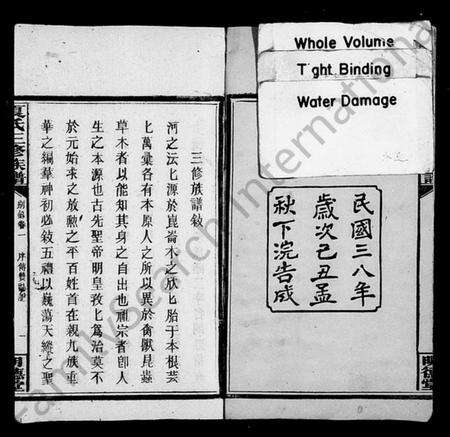 Whole Volume
Tight Binding
Water Damage
民國三八年
歲次己丑孟
秋下浣告成
三修族譜敍
河之沄也源於崑崙木之欣也胎于本根芸
七萬彙各有本原人之所以異於禽獸昆蟲
草木者以能知其身之自出也祖宗者卽人
生之本源也古先聖帝明皇孜孜為治莫不
於元始求之放勳之平百姓首在親九族重
華之編羣神初必敍五禮以巍蕩天縱之聖
氏三修族譜
明德堂
明德堂
FamilySearch International